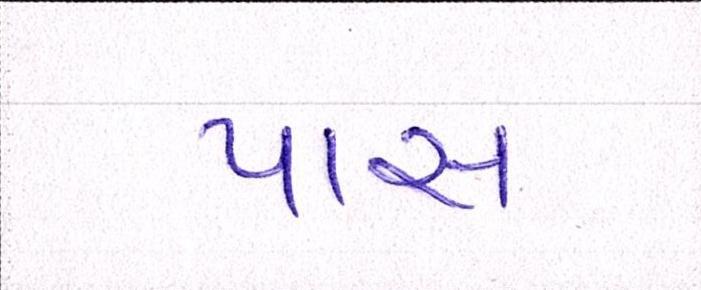 પાસ